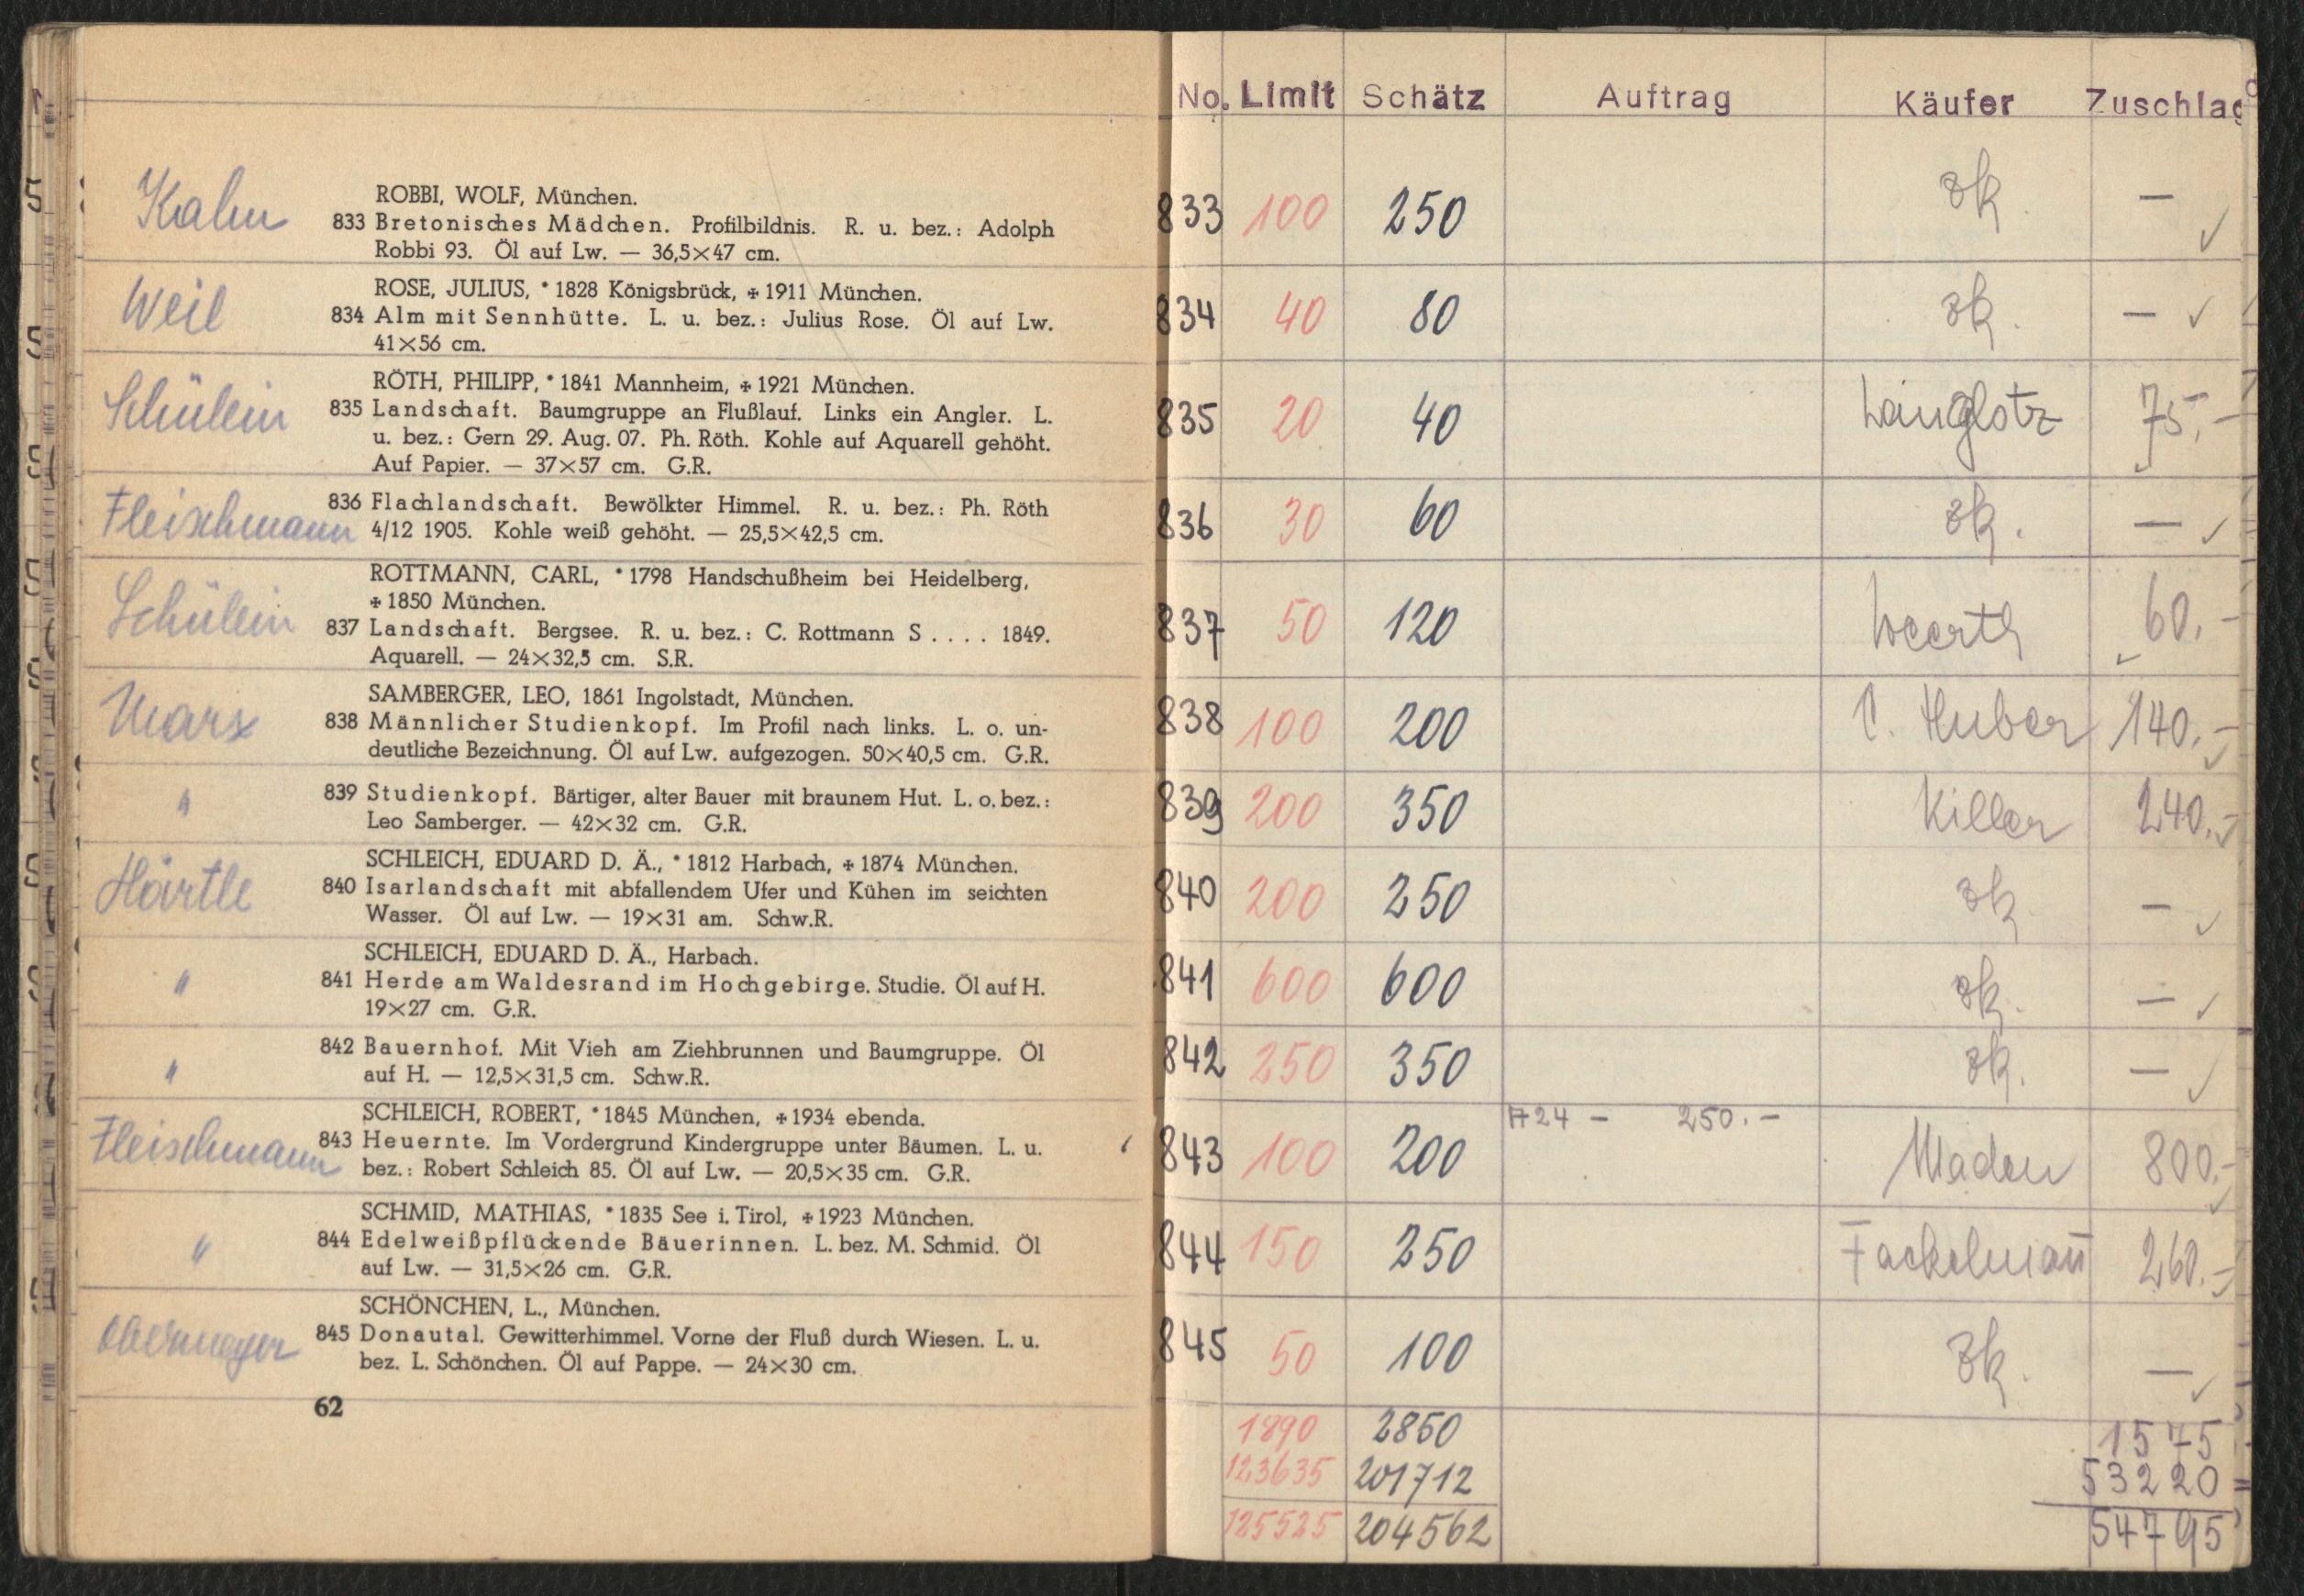 Kahn
ROBBI, WOLF, München.
833 Bretonisches Mädchen. Profilbildnis. R. u. bez.: Adolph
Robbi 93. Öl auf Lw. — 36,5×47 cm.
Weil
ROSE, JULIUS, *1828 Königsbrück, ✠1911 München.
834 Alm mit Sennhütte. L. u. bez.: Julius Rose. Öl auf Lw.
41×56 cm.
Schülein
RÖTH, PHILIPP, *1841 Mannheim, ✠1921 München.
835 Landschaft. Baumgruppe an Flußlauf. Links ein Angler. L.
u. bez.: Gern 29. Aug. 07. Ph. Röth. Kohle auf Aquarell gehöht.
Auf Papier. — 37×57 cm. G.R.
Fleischmann
836 Flachlandschaft. Bewölkter Himmel. R. u. bez.: Ph. Röth
4/12 1905. Kohle weiß gehöht. — 25,5×42,5 cm.
Schülein
ROTTMANN, CARL, *1798 Handschußheim bei Heidelberg,
✠1850 München.
837 Landschaft. Bergsee. R. u. bez.: C. Rottmann S . . . . 1849.
Aquarell. — 24×32,5 cm. S.R.
Marx
SAMBERGER, LEO, 1861 Ingolstadt, München.
838 Männlicher Studienkopf. Im Profil nach links. L. o. un-
deutliche Bezeichnung. Öl auf Lw. aufgezogen. 50×40,5 cm. G.R.
"
839 Studienkopf. Bärtiger, alter Bauer mit braunem Hut. L. o. bez.:
Leo Samberger. — 42×32 cm. G.R.
Härtle
SCHLEICH, EDUARD D. Ä., *1812 Harbach, ✠1874 München.
840 Isarlandschaft mit abfallendem Ufer und Kühen im seichten
Wasser. Öl auf Lw. — 19×31 am. Schw.R.
"
SCHLEICH, EDUARD D. Ä., Harbach.
841 Herde am Waldesrand im Hochgebirge. Studie. Öl auf H.
19×27 cm. G.R.
"
842 Bauernhof. Mit Vieh am Ziehbrunnen und Baumgruppe. Öl
auf H. — 12,5×31,5 cm. Schw.R.
Fleischmann
SCHLEICH, ROBERT, *1845 München, ✠1934 ebenda.
843 Heuernte. Im Vordergrund Kindergruppe unter Bäumen. L. u.
bez.: Robert Schleich 85. Öl auf Lw. — 20,5×35 cm. G.R.
"
SCHMID, MATHIAS, *1835 See i. Tirol, ✠1923 München.
844 Edelweißpflückende Bäuerinnen. L. bez. M. Schmid. Öl
auf Lw. — 31,5×26 cm. G.R.
Obermeyer
SCHÖNCHEN, L., München.
845 Donautal. Gewitterhimmel. Vorne der Fluß durch Wiesen. L. u.
bez. L. Schönchen. Öl auf Pappe. — 24×30 cm.
62
No. Limit Schätz Auftrag Käufer Zuschlag
833 100 250 zk. — ✓
834 40 80 zk. — ✓
835 20 40 Langlotz 75.- ✓
836 30 60 zk. — ✓
837 50 120 Weerth 60.- ✓
838 100 200 Huber 140.- ✓
839 200 350 Killer 240.- ✓
840 200 250 zk. — ✓
841 600 600 zk. — ✓
842 250 350 zk. — ✓
A24 - 250.-
843 100 200 Maden 800.- ✓
844 150 250 Fackelmañ 260.- ✓
845 50 100 zk. — ✓
1890 2850 1575
123635 201712 53220
125525 204562 54795